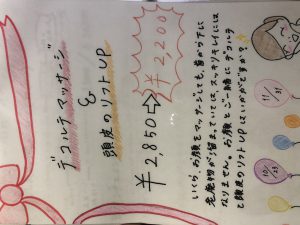 デコルテマッサージ
&
頭皮のリフトUP
¥2,850⇨¥2200
いくら、お顔をマッサージしても、首から下に
老廃物が溜まっていては、スッキリキレイには
なりません。お顔とご一緒にデコルテ
と頭皮のリフトUPはいかがですか？
10/23
11/31